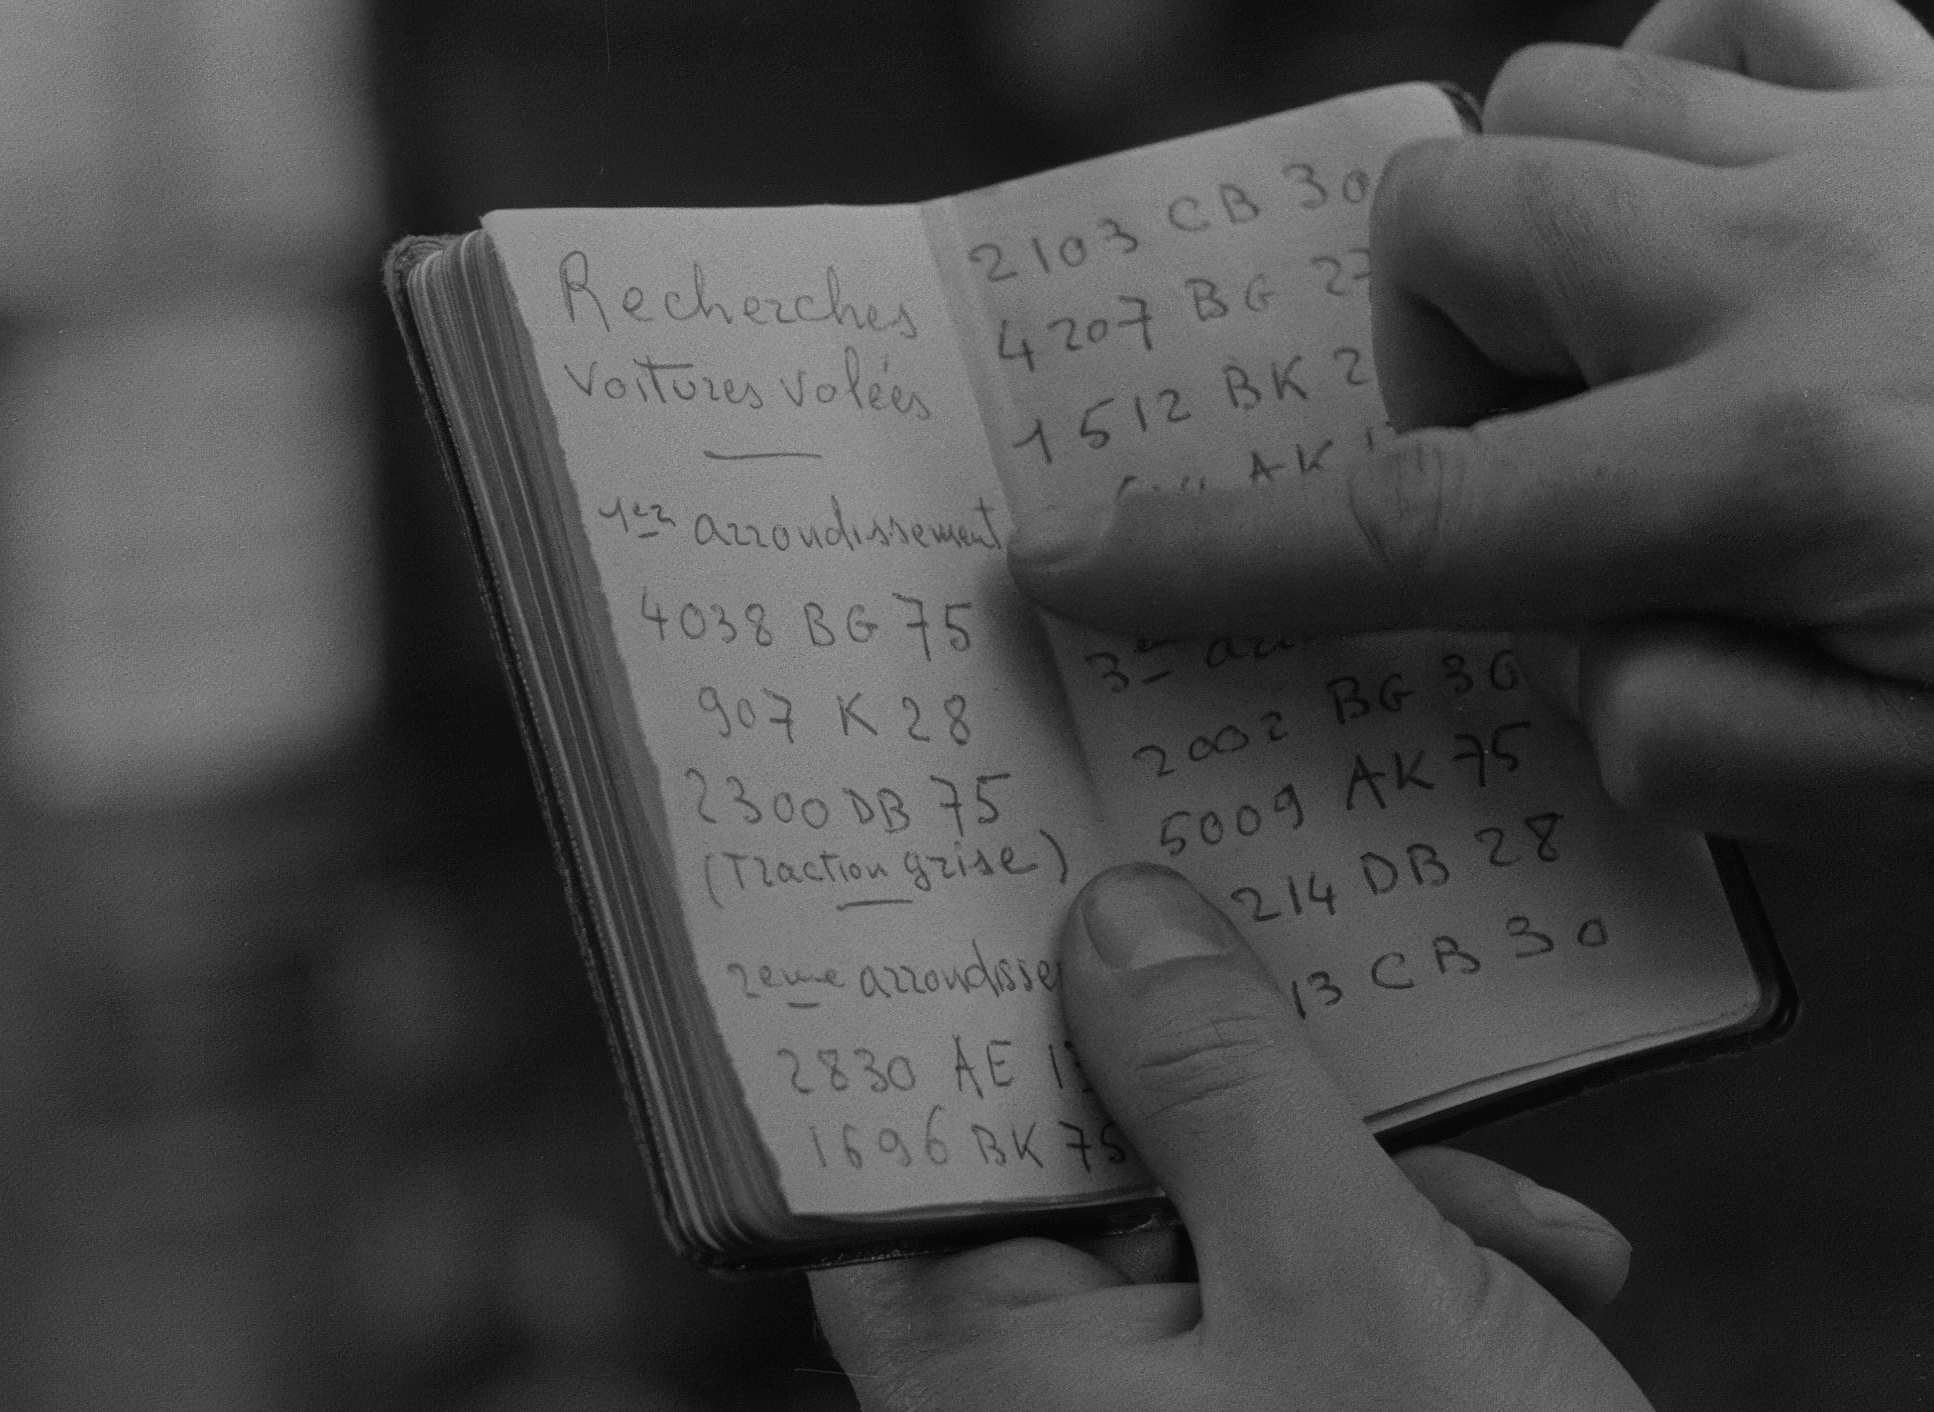 Recherches
voitures volées
1er arrondissement
4038 BG 75
907 K 28
2300 DB 75
(Traction grise)
2eme arrondisse
2830 AE 13
1696 BK 75
2103 CB 30
4207 BG 27
1512 BK 2
AK
3e
2002 BG 3G
5009 AK 75
214 DB 28
13 CB 30